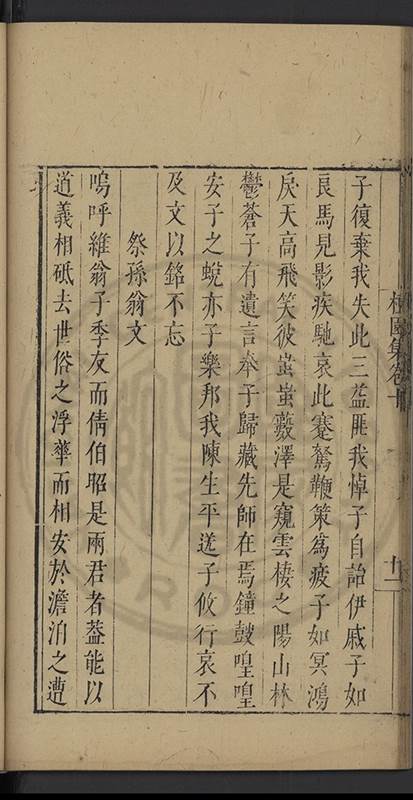 子復棄我失此三益匪我悼子自詒伊戚子如
良馬見影疾馳哀此蹇駑鞭策爲疲子如冥鴻
戾天高飛笑彼蚩蚩藪澤是窺雲棲之陽山林
鬱蒼子有遺言奉子歸藏先師在焉鐘鼓喤喤
安子之蛻亦子樂邦我陳生平送子攸行哀不
及文以銘不忘
祭孫翁文
嗚呼維翁子季友而倩伯昭是兩君者蓋能以
道義相砥去世俗之浮華而相安於澹泊之遭
園集卷十